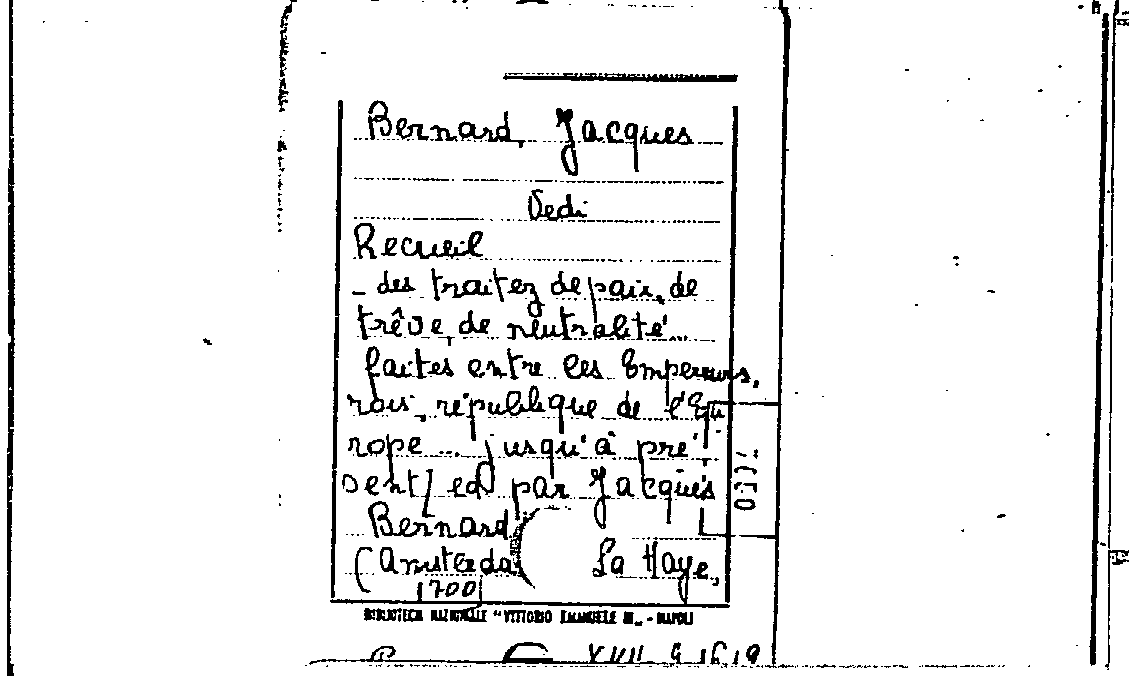 Bernard, Jacques
Vedi
Recueil
- des traitez de paix, de
trêve, de neutralité...
faites entre les Empereurs,
rois, république de l'Eu
rope... jusqu'à pré
sent / ed par Jacques
Bernard
(Amsteda La Haye,
1700
BIBLIOTECA NAZIONALE "VITTORIO EMANUELE III" - NAPOLI